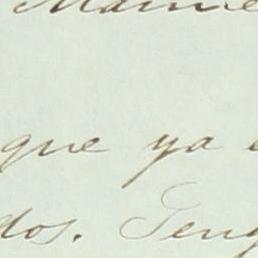 que ya
dos. Teng